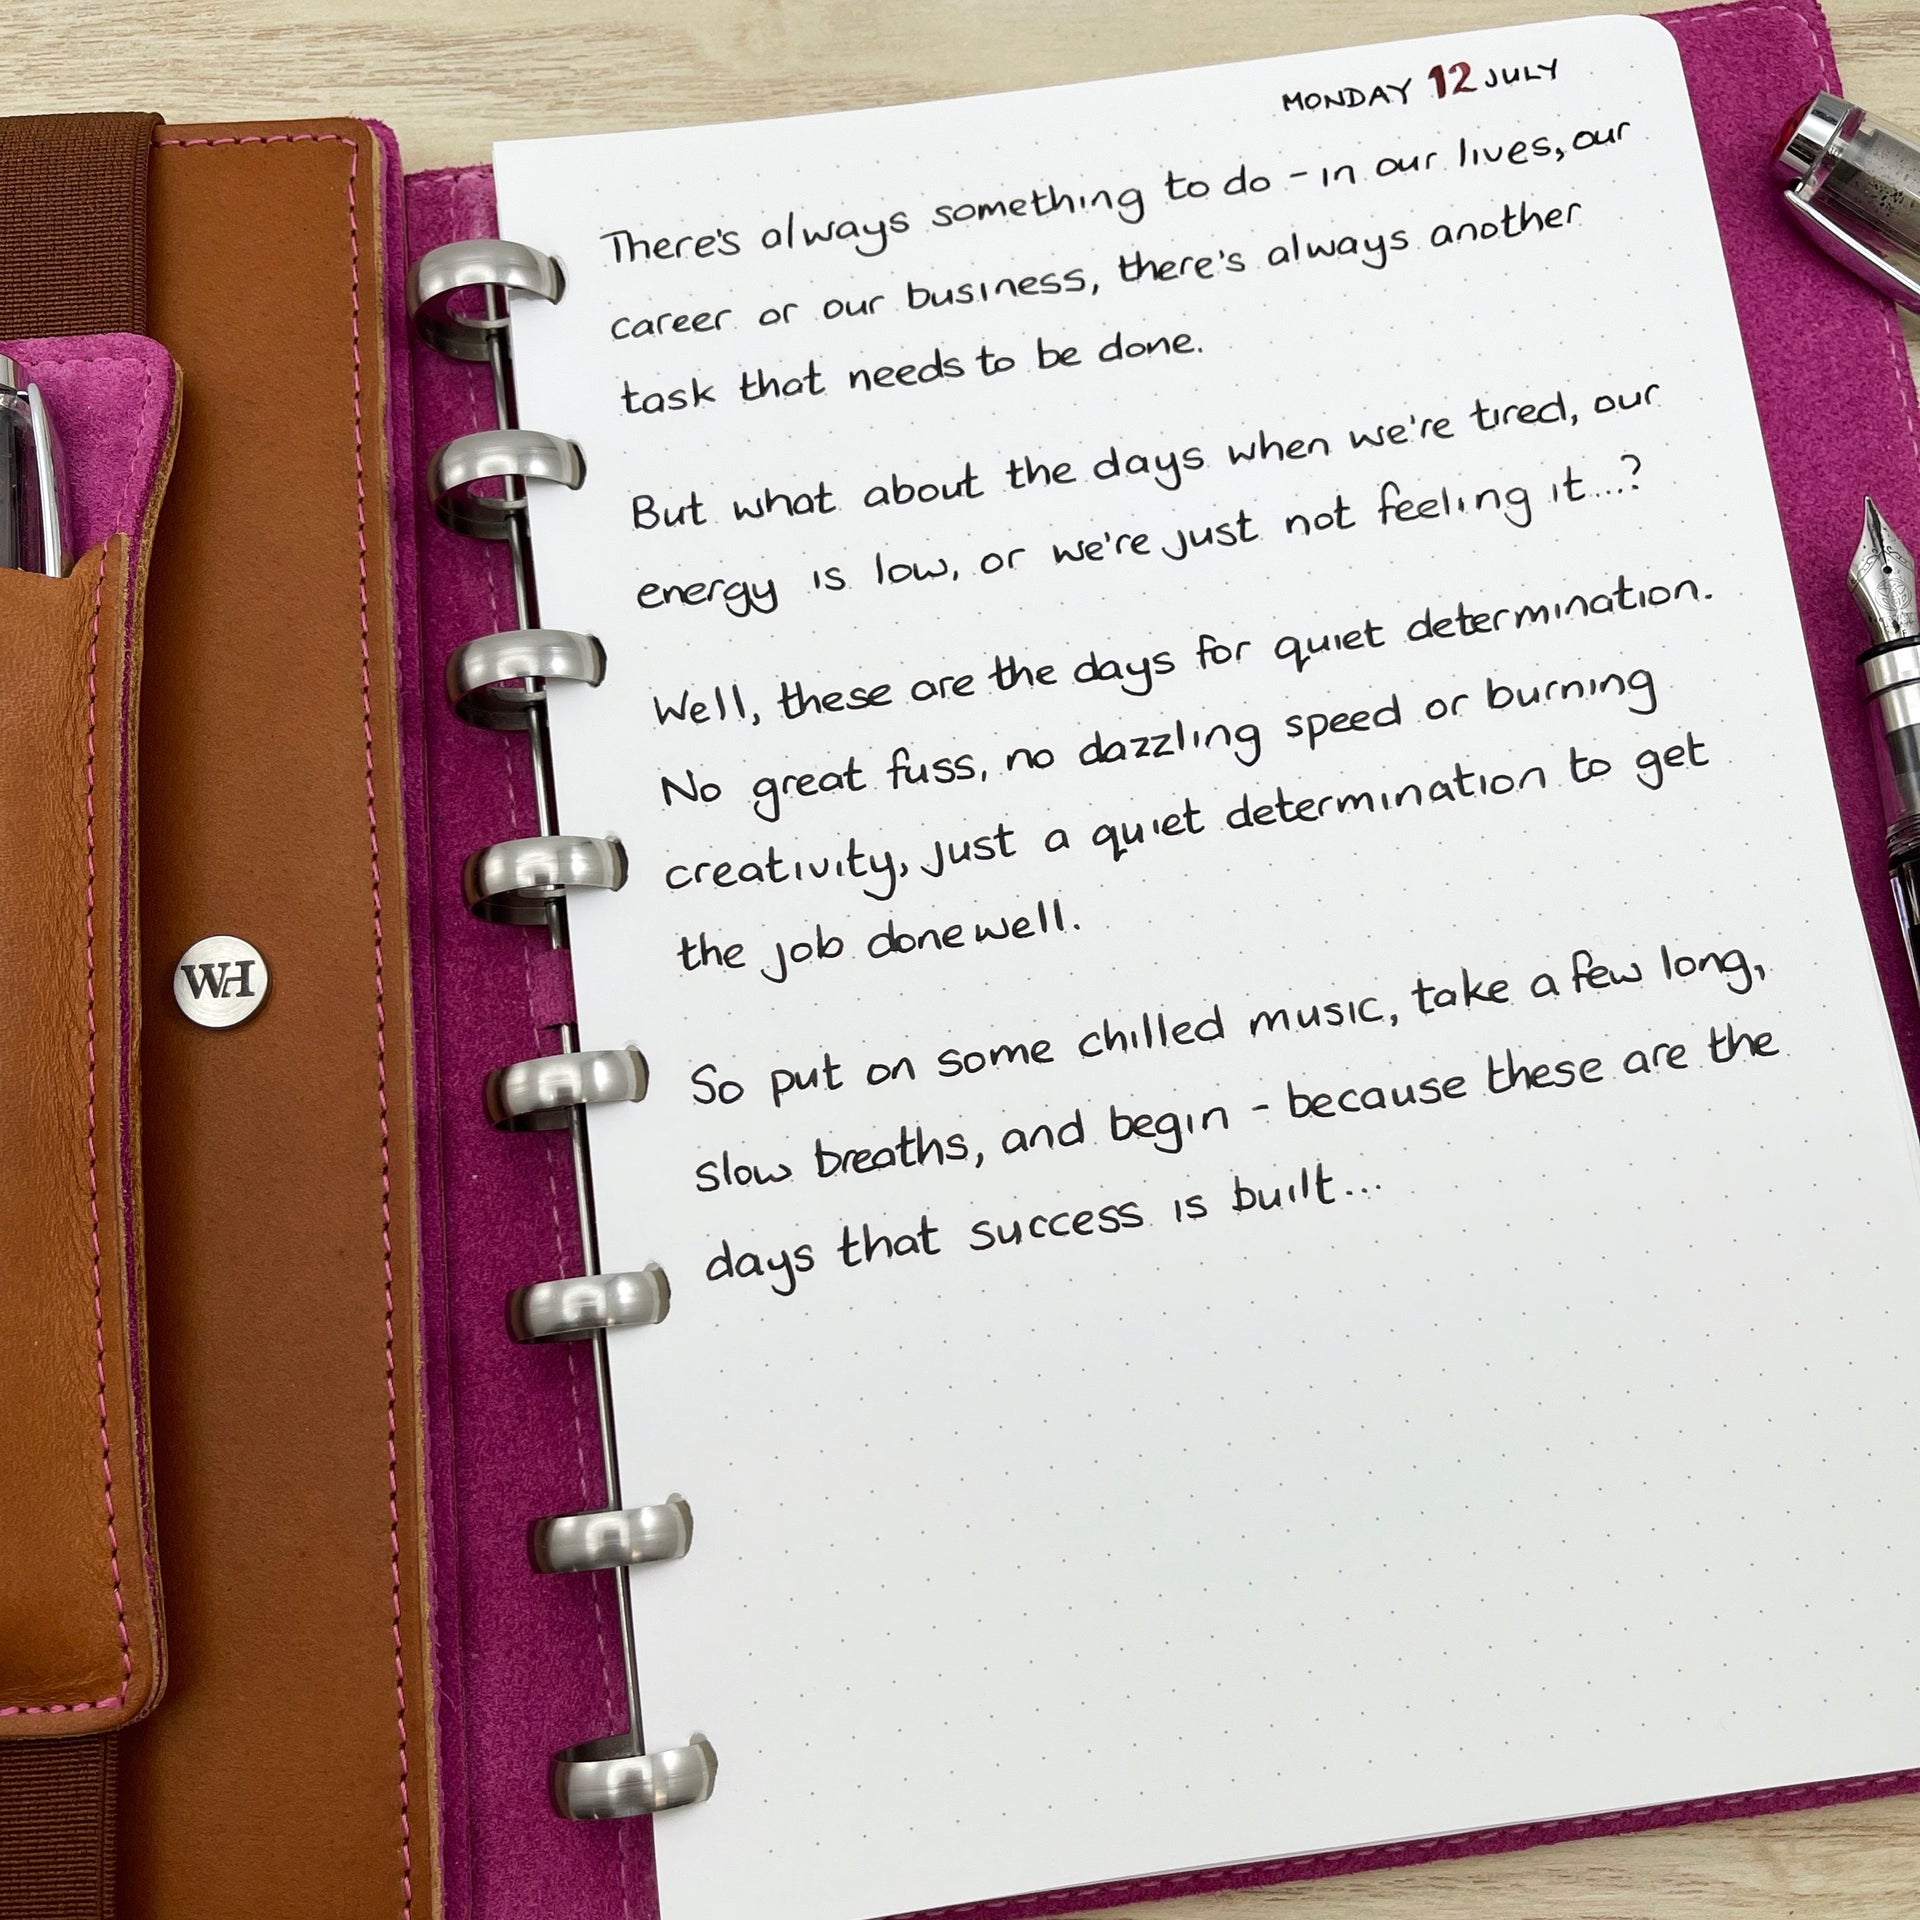 MONDAY 12 JULY
There's always something to do - in our lives, our
career or our business, there's always another
task that needs to be done.
But what about the days when we're tired, our
energy is low, or we're just not feeling it...?
Well, these are the days for quiet determination.
No great fuss, no dazzling speed or burning
creativity, just a quiet determination to get
the job done well.
So put on some chilled music, take a few long,
slow breaths, and begin - because these are the
days that success is built...
WH